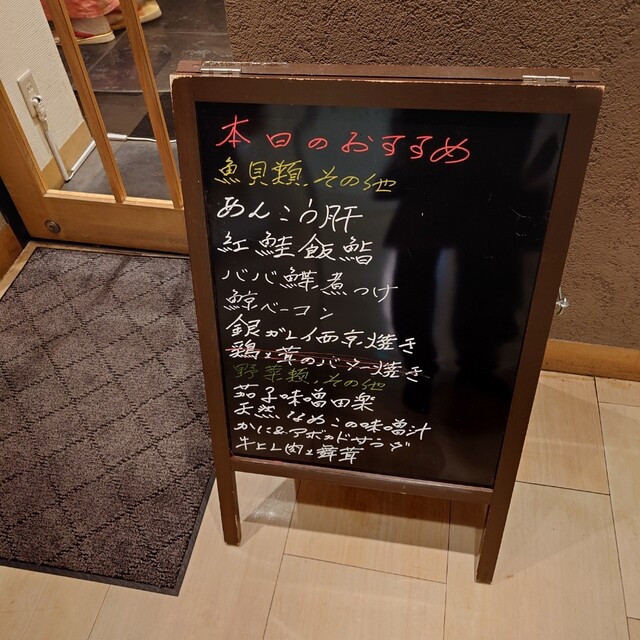 本日のおすすめ
魚貝類.その他
あんこう肝
紅鮭飯鮨
ババ鰈煮つけ
鯨ベーコン
銀ガレイ西京焼き
鶏と茸のバター焼き
野菜類.その他
茄子味噌田楽
天然なめこの味噌汁
かに&アボカドサラダ
牛ヒレ肉と舞茸